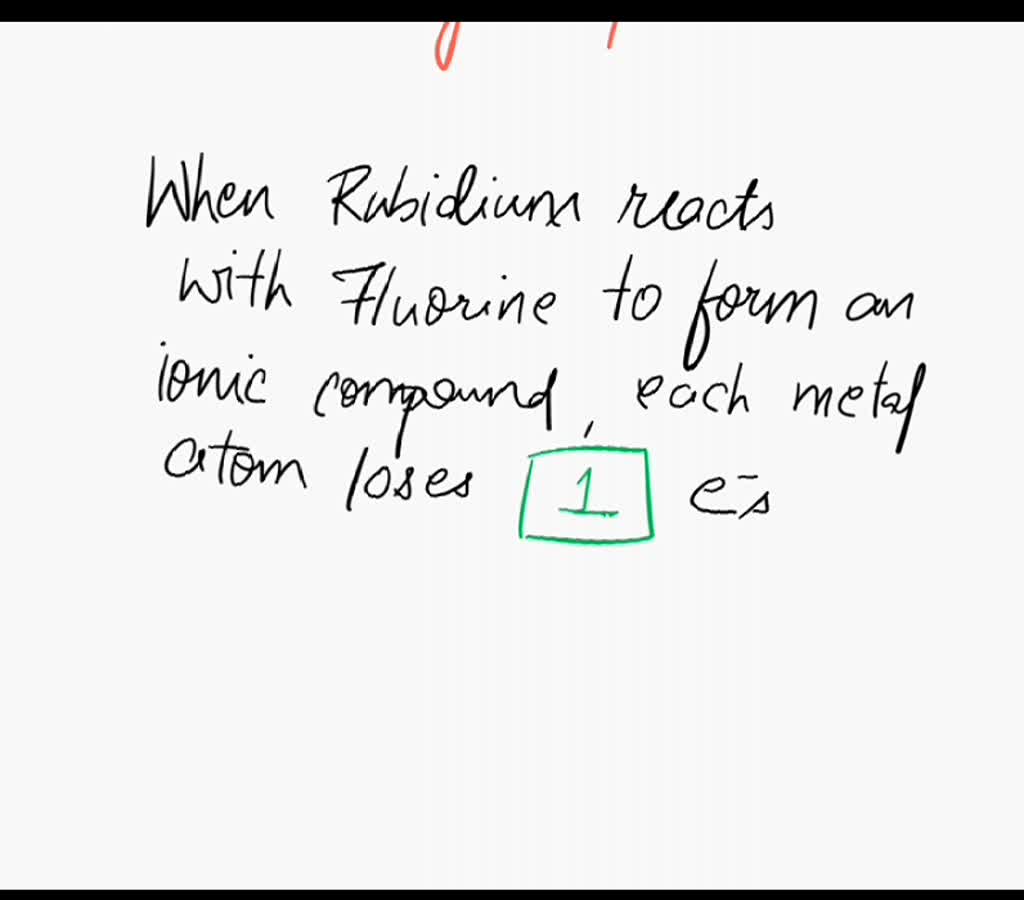 When Rubidium reacts
with Fluorine to form an
ionic compound, each metal
atom loses 1 e⁻s